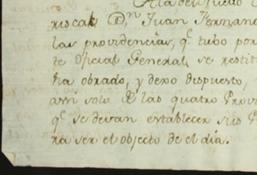 riscal D.n Juan Hernan
las providencias, q.e tubo por
te Oficial General, se restit
ha obrado, y dexo dispuesto,
assi solo D las quatro Prov
q.e se devan establecer sus P
ra ser el objecto de el dia.